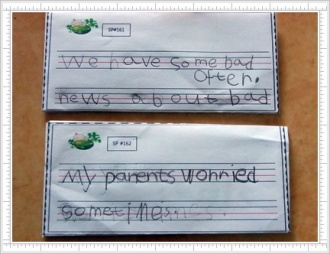 SP#161
We have some bad
often.
news about bad
SP #162
My parents worried
sometimes.